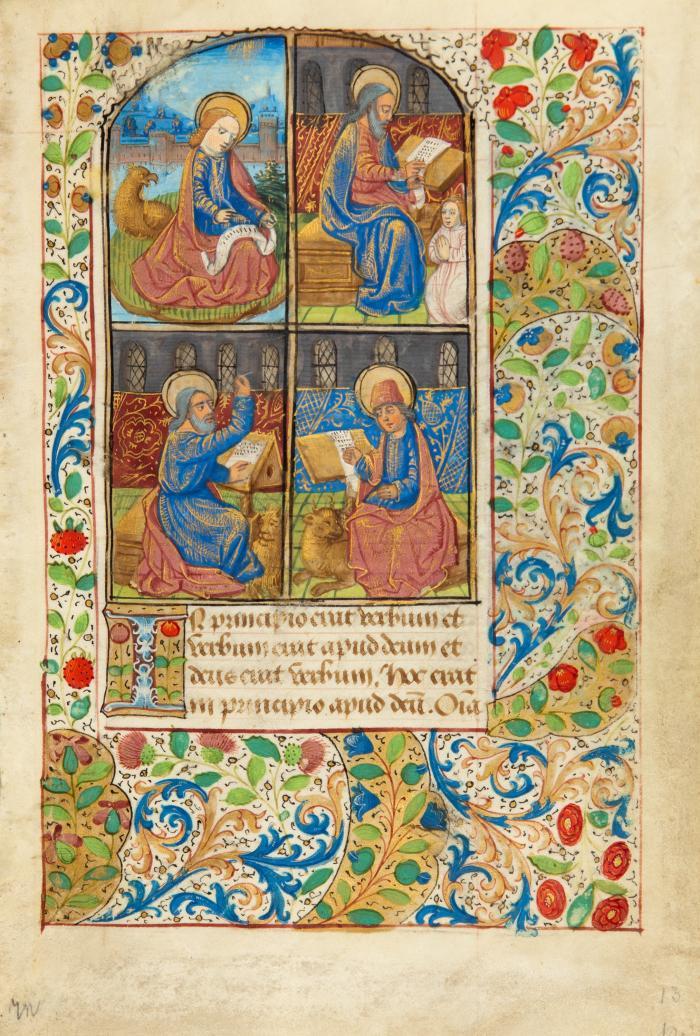 In principio erat verbum et
verbum erat apud deum et
deus erat verbum. Hoc erat
in principio apud deū. Oīa
13